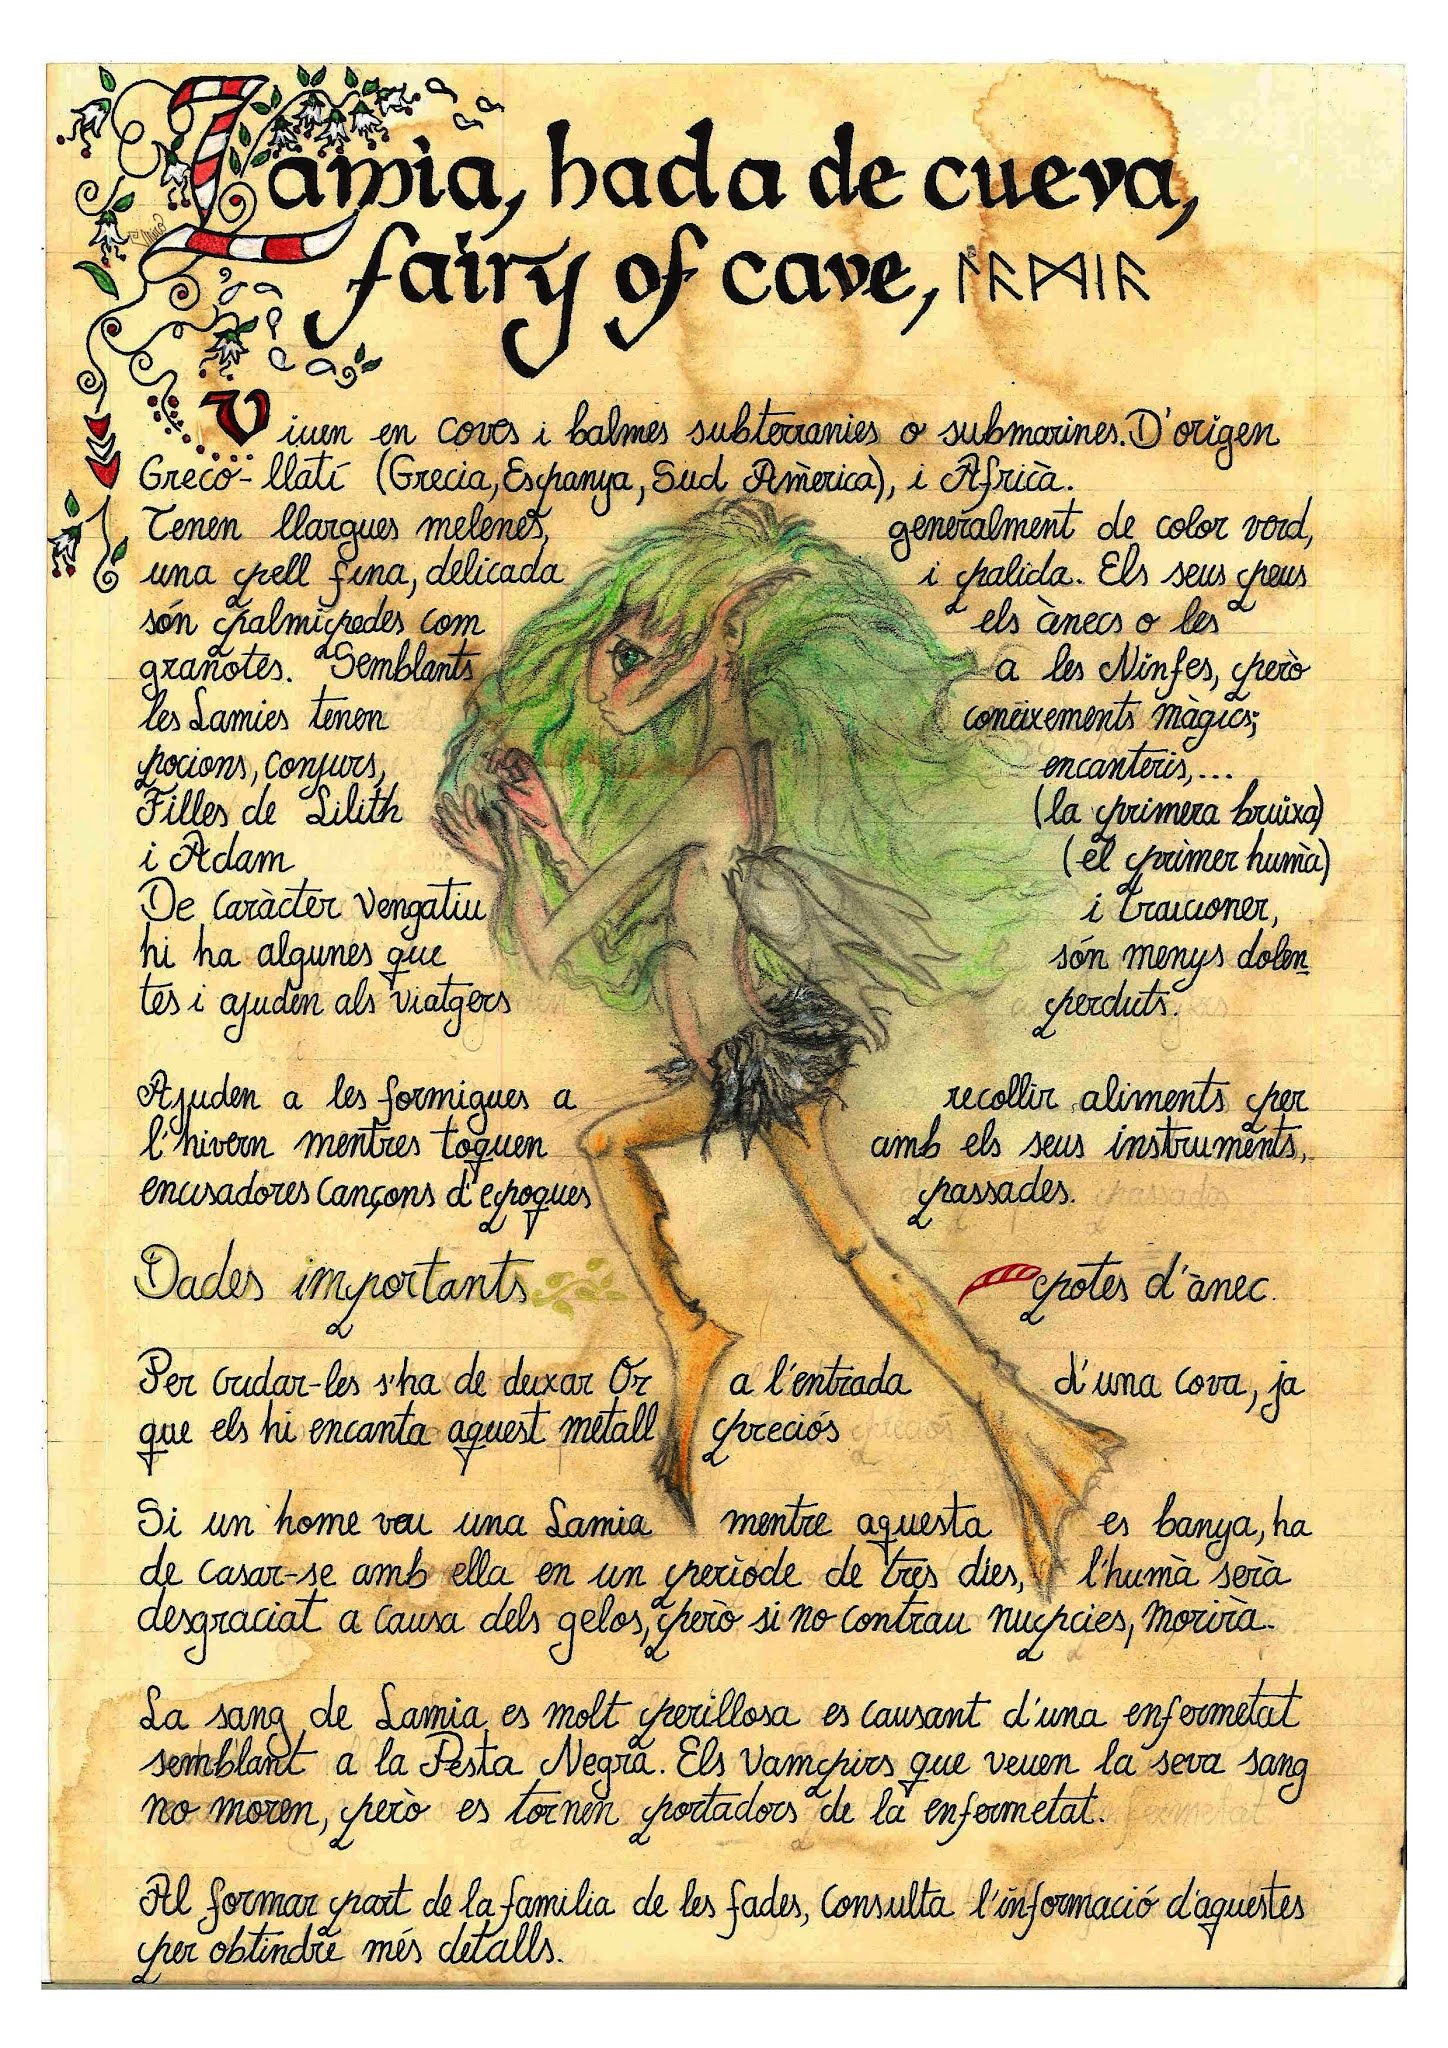 Lamia, hada de cueva,
fairy of cave, ᛚᚨᛗᛁᚨ
Viuen en coves i balmes subterranies o submarines. D'origen
Greco-llatí (Grecia, Espanya, Sud Amèrica), i Àfricà.
Tenen llargues melenes, generalment de color verd,
una pell fina, delicada i palida. Els seus peus
són palmípedes com els ànecs o les
granotes. Semblants a les Ninfes, però
les Lamies tenen coneixements màgics;
pocions, conjurs, encanteris,...
Filles de Lilith (la primera bruixa)
i Adam (el primer humà)
De caràcter vengatiu i traicioner,
hi ha algunes que són menys dolen
tes i ajuden als viatgers perduts.
Ajuden a les formigues a recollir aliments per
l'hivern mentres toquen amb els seus instruments,
encisadores cançons d'epoques passades.
Dades importants potes d'ànec.
Per cridar-les s'ha de deixar Or a l'entrada d'una cova, ja
que els hi encanta aquest metall preciós
Si un home veu una Lamia mentre aquesta es banya, ha
de casar-se amb ella en un període de tres dies, l'humà serà
desgraciat a causa dels gelos, però si no contrau nupcies, morirà.
La sang de Lamia es molt perillosa es causant d'una enfermetat
semblant a la Pesta Negra. Els Vampirs que veuen la seva sang
no moren, però es tornen portadors de la enfermetat.
Al formar part de la familia de les fades, consulta l'informació d'aquestes
per obtindre més detalls.